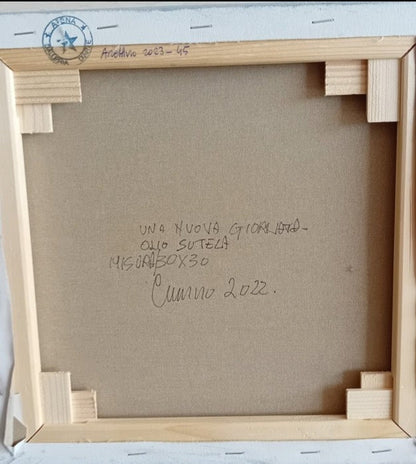 ATENA
Archivio 2023-45
UNA NUOVA GIORNATA-
OLIO SU TELA
MISURA 30X30
Cumino 2022.